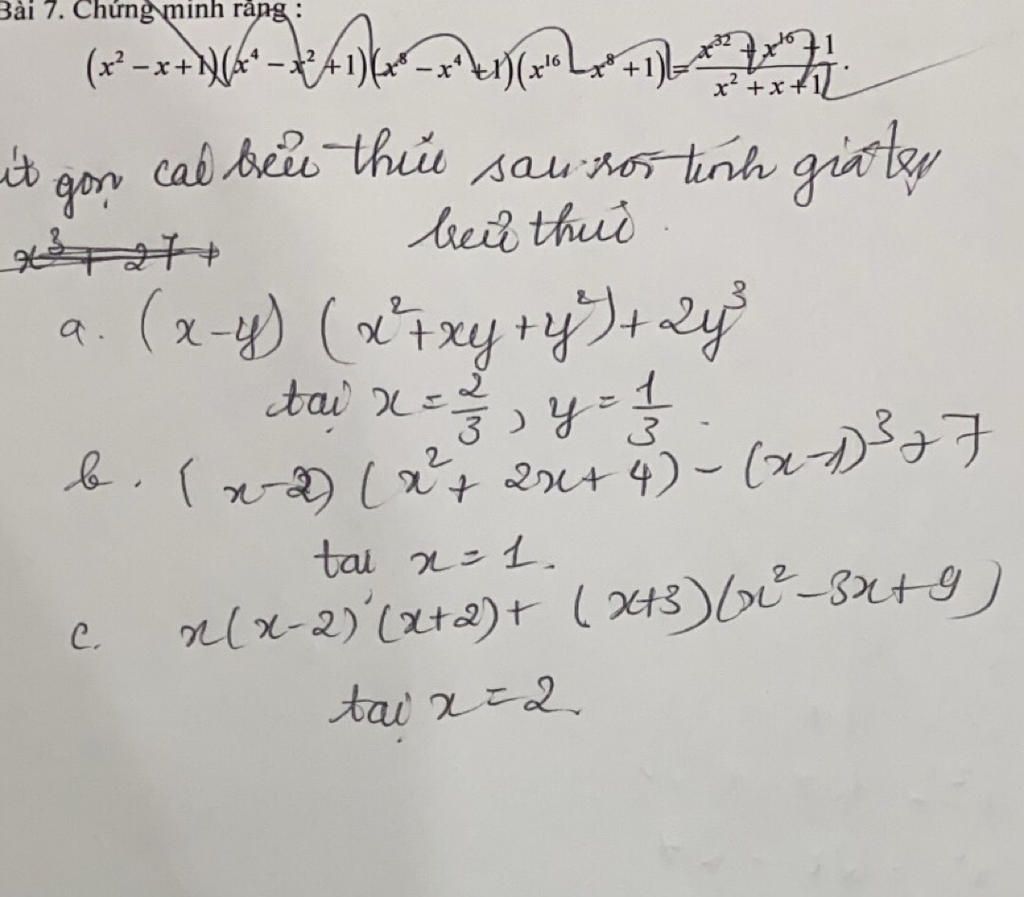 Bài 7. Chứng minh rằng :
(x² − x + 1)(x⁴ − x² + 1)(x⁸ − x⁴ + 1)(x¹⁶ − x⁸ + 1) = (x³² + x¹⁶ + 1)/(x² + x + 1).
ít gọn các biểu thức sau rồi tính giá trị
biểu thức.
x³ + 27 +
a. (x-y) (x² + xy + y²) + 2y³
tại x = 2/3, y = 1/3.
b. (x-2) (x² + 2x + 4) - (x-1)³ + 7
tại x = 1.
c. x(x-2)(x+2) + (x+3)(x² - 3x + 9)
tại x = 2.